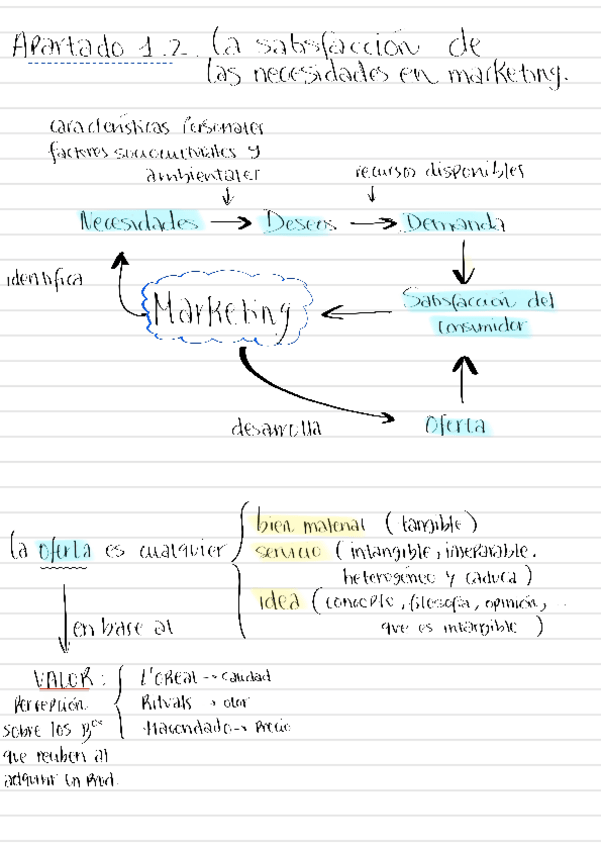 Apartado 1.2. La satisfacción de
las necesidades en marketing.
características Personales
factores socioculturales y
ambientales
recursos disponibles
Necesidades → Deseos → Demanda
identifica
Marketing
Satisfacción del
consumidor
desarrolla
Oferta
La oferta es cualquier
bien material (tangible)
servicio (intangible, inseparable.
heterogéneo y caduca)
idea (concepto, filosofía, opinión,
que es intangible)
en base al
VALOR:
Percepción
sobre los
que reciben al
adquirir un Prod.
L'OREAL → calidad
Rituals → olor
Hacendado → Precio